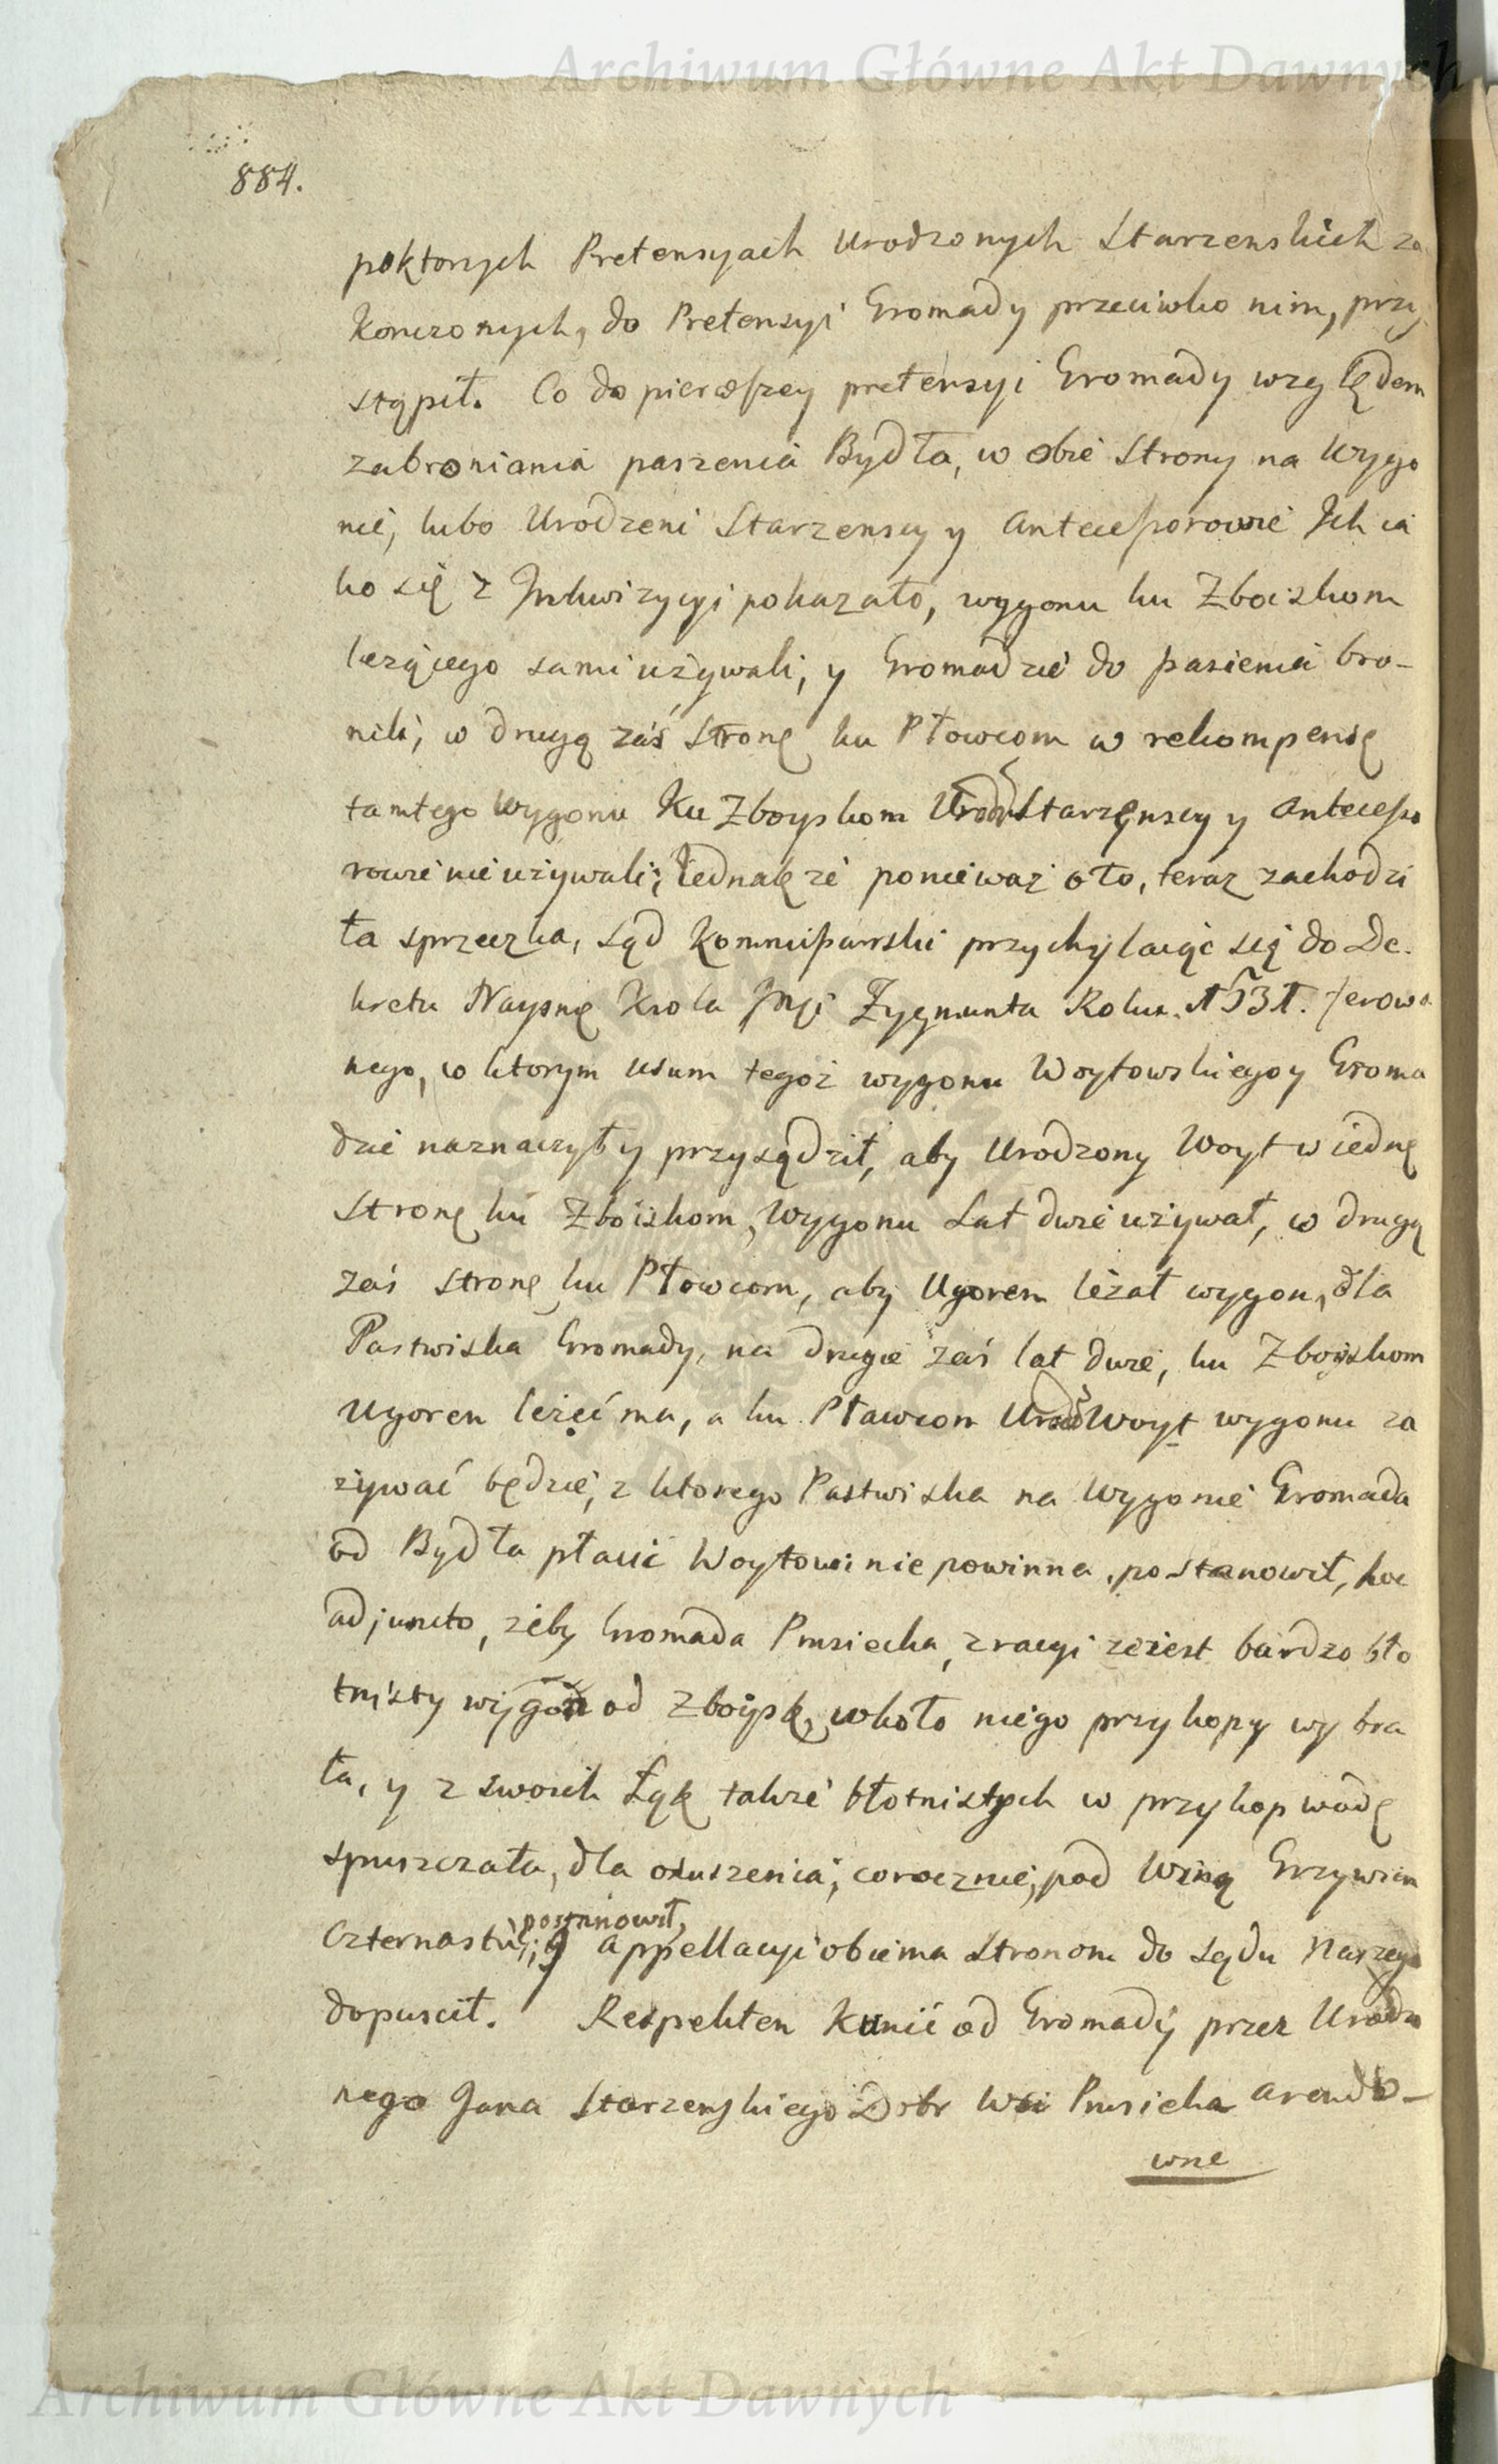 Archiwum Główne Akt Dawnych
884.
poktorych Pretensyach Urodzonych Starzenskich za
konczonych, do Pretensyi Gromady przeciwko nim, przy
stąpił. Co do pierwszey pretensyi Gromady względem
zabroniania paszenia Bydła, w obie strony na Wygo
nie, lubo Urodzeni Starzenscy y Antecessorowie Ich ia
ko się z Inkwizycyi pokazało, wygonu ku Zboiskom
lezącego sami używali, y Gromadzie do pasienia bro-
nili, w drugą zaś stronę ku Płowcom w rekompensę
tamtego Wygonu Ku Zboyskom Urodź Starzęnscy y Antecesso
rowie nie używali; Jednakże ponieważ oto, teraz zachodzi
ła sprzeczka, Sąd Kommissarski przychylaiąc się do De-
kretu Nayśnię Krola Jmci Zygmunta Roku. 1531. ferowa
nego, w ktorym usum tegoż wygonu Woytowskiego y Groma
dzie naznaczył y przysądził, aby Urodzony Woyt w iednę
stronę ku Zboiskom, Wygonu Lat dwie używał, w drugą
zaś stronę ku Płowcom, aby Ugorem leżał wygon, dla
Pastwiska Gromady, na drugie zaś lat dwie, ku Zboyskom
Ugorem leżeć ma, a ku Pławcom Urodź Woyt wygonu za
żywać będzie, z ktorego Pastwiska na Wygonie Gromada
od Bydła płacić Woytowi nie powinna, postanowił, hoc
adjuncto, żeby Gromada Prusiecka, z racyi że iest bardzo bło
tnisty wygon od Zboysk, wkoło niego przykopy wybra
ła, y z swoich Łąk także błotnistych w przykop wodę
spuszczała, dla osuszenia, corocznie, pod Winą Grzywien
Czternastu, postanowił, y appellacyi obiema stronom do sądu Naszego
dopuscił. Respektem Kunic od Gromady przez Urodzo
nego Jana Starzenskiego Dobr Wsi Prusieka arendo-
wne
Archiwum Główne Akt Dawnych